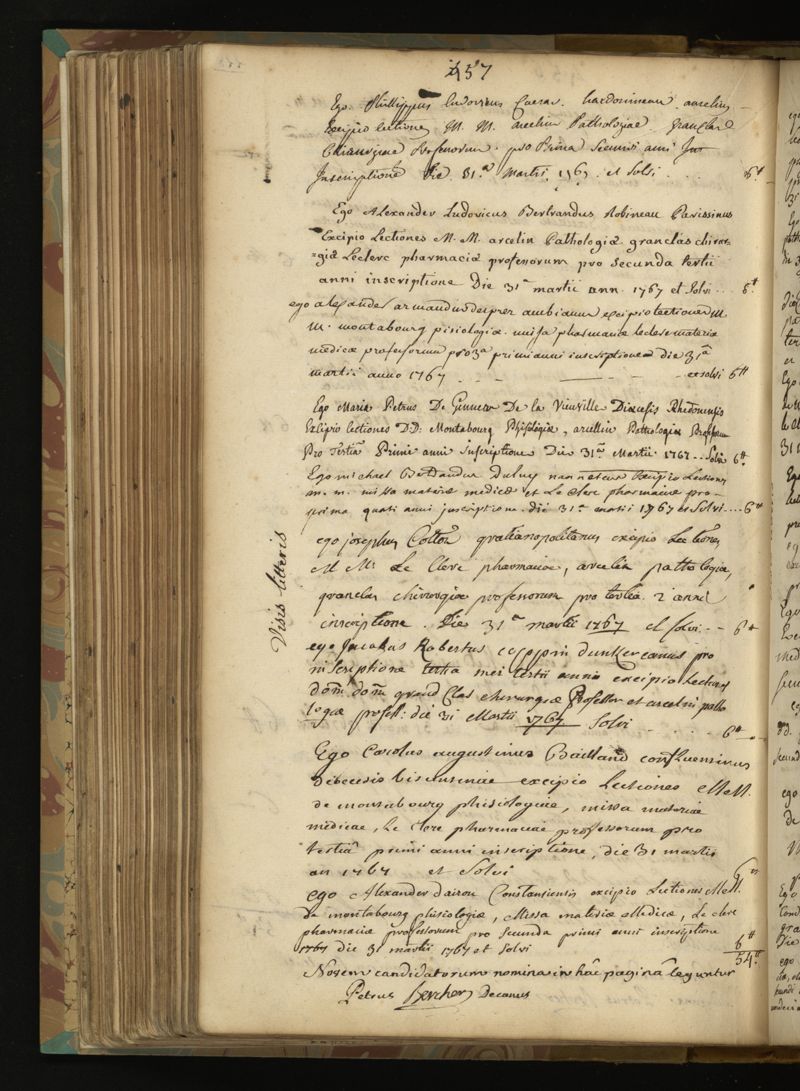 457
Ego Phillippus ludovicus Caesar hardouineau aurelius
Excipio lectiones M. M. arcelin Pathologiae grandclas
Chirurgiae Professorum pro Prima Secundi anni
Inscriptione Die 31.a Martii 1767. et Solvi .... 6tt
Ego Alexander Ludovicus Bertrandus Robineau Parissinus
Excipio Lectiones M. M. arcelin Pathologiæ granclas chirur
=giæ Leclerc pharmaciæ professorum pro Secunda tertii
anni inscriptione Die 31a martii ann. 1767 et Solvi ... 6tt
ego alexander armandus desprez ambianus excipio lectiones M
M. montabourg phisiologiæ. missa pharmaciæ leclerc materiæ
medicæ professorum pro 3a primi anni inscriptione die 31a
martii anno 1767 . - . - et solvi 6tt
Ego Maria Petrus De Guinnew De la Vieuville Diœcesis Rhedonensis
Excipio lectiones D.D. Montabourg Phisiologiæ, arcellin Pathologiæ Professorum
Pro Tertiâ Primi anni Inscriptione Die 31a Martii 1767 .. Solvi 6tt
Ego michael Bertrandus Duluy nannetensis Excipio Lectiones
m. m. missa materiæ medicæ et Le clerc pharmaciæ pro-
prima quarti anni inscriptione die 31a martii 1767 et Solvi .... 6tt
Visis litteris
ego josephus Cotton gratianopolitanus excipio Lectiones
M Mrs Le Clerc pharmaciae, arcelin pathologiae,
granclas chirurgiæ professorum pro tertia 2i anni
inscriptione . Die 31a martii 1767 et solvi - - 6tt
ego Jacobus Robertus coppin dunkercanus pro
inscriptione tertia mei tertii anni excipio Lectiones
dom. dom. grand Clas chirurgiæ Professor et arcelin patho
logiæ profess: die 31 Martii 1767 Solvi . . . . . 6tt
Ego Carolus augustinus Bailland confluensinus
dioecesis bisuntinae excipio Lectiones MM.
de montabourg phisiologiae, missa materiae
medicae, Le Clerc pharmaciae professorum pro
tertiâ primi anni inscriptione, die 31 martis
an 1767 et Solvi 6tt
ego Alexander dairou Constansiensis excipio Lectiones MM.
de montabourg phisiologiæ, Missa materiæ Medicæ, Le clerc
pharmaciæ professorum pro Secunda primi anni inscriptione
1767 die 31 martii 1767 et solvi 6tt
54tt
Novem candidatorum nomina in hâc paginâ leguntur
Petrus Bercher Decanus